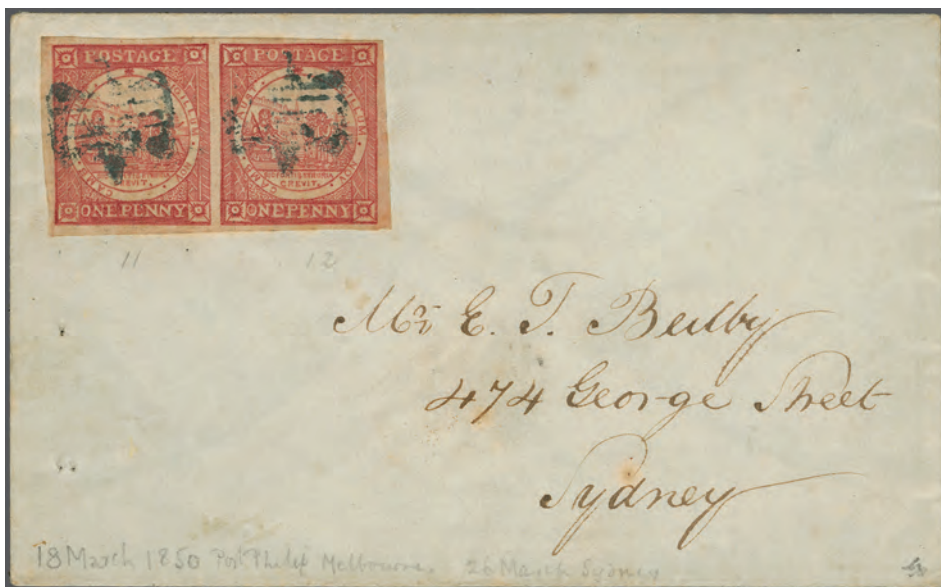 POSTAGE POSTAGE
ONE PENNY ONE PENNY
11 12
Mr E. T. Beilby
474 George Street
Sydney
18 March 1850 Port Philip Melbourne. 26 March Sydney